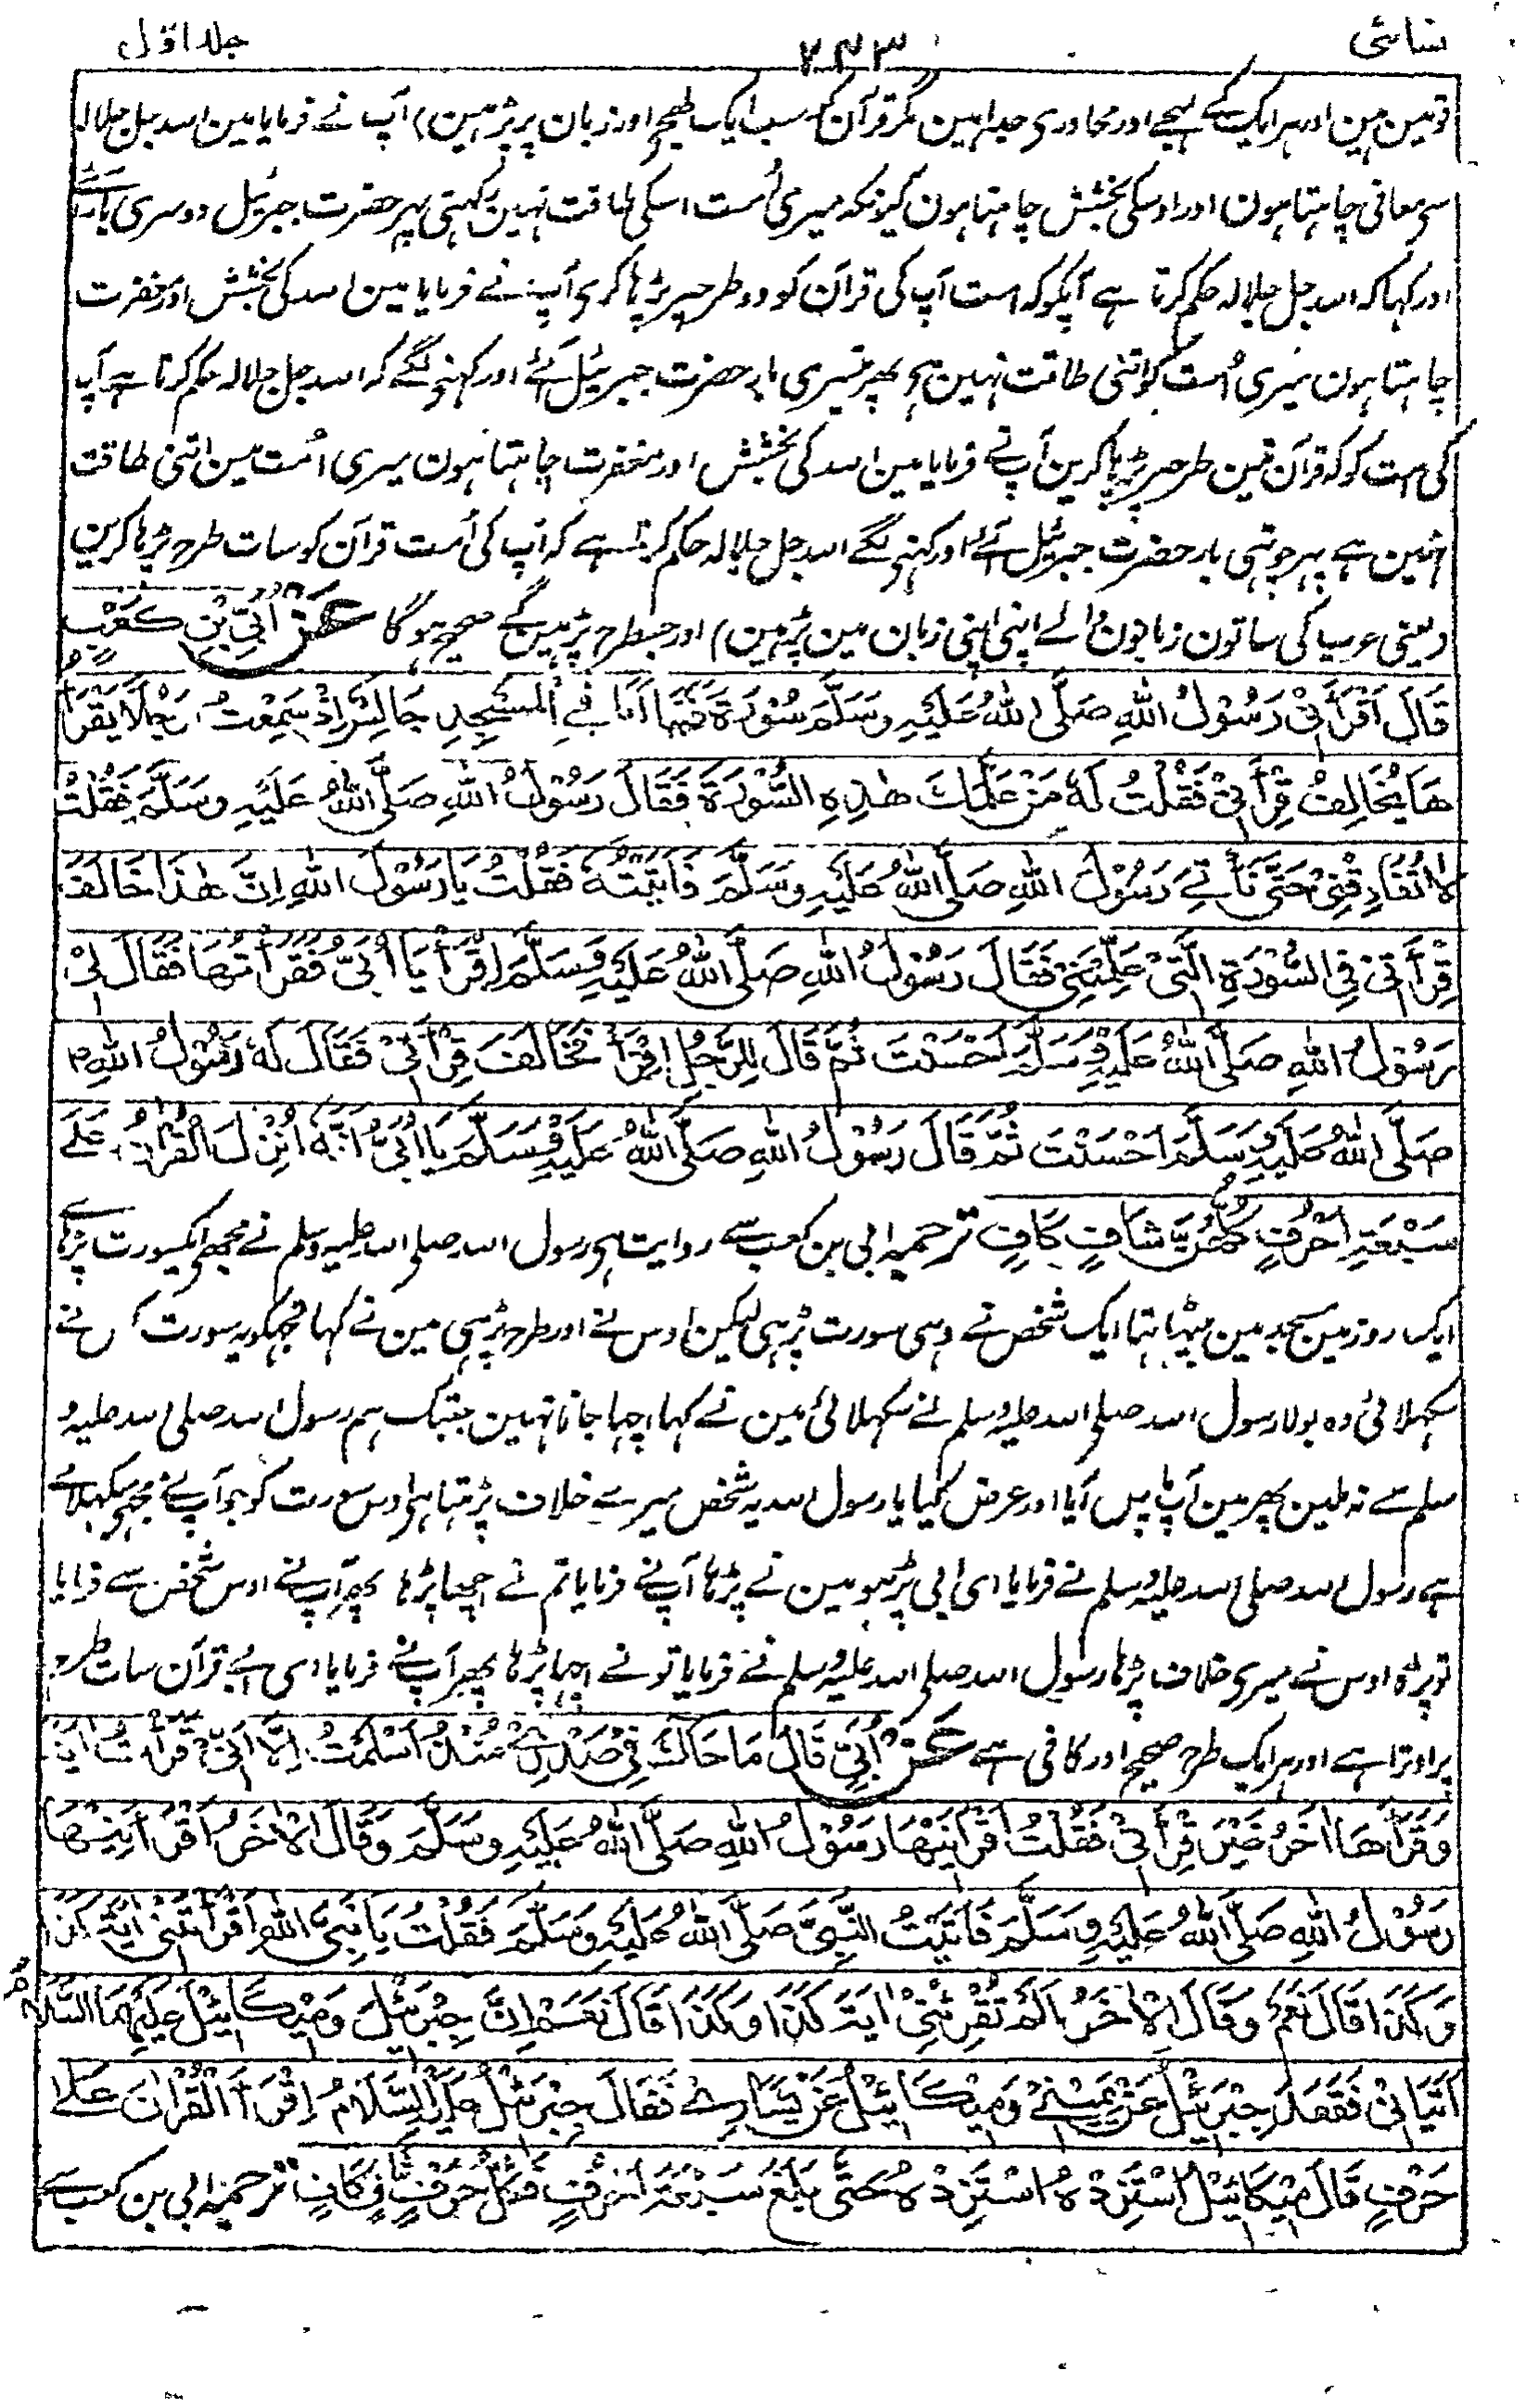 نسائی ۲۴۳ جلد اوّل
قومین ہین اور ہر ایک کے لہجے اور محاوری جدا ہین مگر قرآن کو سب ایک لہجے اور زبان پر پڑہین) آپ نے فرمایا مین اسد جل جلالہ
سے معافی چاہتا ہون اور اوسکی بخشش چاہتا ہون کیونکہ میری اُمت اسکی طاقت نہین رکہتی پہر حضرت جبرئیل دوسری بار آئے
اور کہا کہ اسد جل جلالہ حکم کرتا ہے آپکو کہ امت آپ کی قرآن کو دو طرح پر پڑہا کری آپ نے فرمایا مین اسد کی بخشش اور مغفرت
چاہتا ہون میری اُمت کو اتنی طاقت نہین ہی پھر تیسری بار حضرت جبرئیل آئے اور کہنے لگے کہ اسد جل جلالہ حکم کرتا ہے آپ
کی امت کو کہ قرآن تین طرح پر پڑہا کرین آپ نے فرمایا مین اسد کی بخشش اور مغفرت چاہتا ہون میری اُمت مین اتنی طاقت
نہین ہے پہر چوتہی بار حضرت جبرئیل آئے اور کہنے لگے اسد جل جلالہ حکم کرتا ہے کہ آپ کی اُمت قرآن کو سات طرح پڑہا کرین
(یعنی عرب کی ساتون زبانون والے اپنی اپنی زبان مین پڑہین) اور جسطرح پڑہین گے صحیح ہوگا عَنْ اُبَيِّ بْنِ كَعْبٍ
قَالَ اَقْرَأَنِيْ رَسُوْلُ اللهِ صَلَّى اللهُ عَلَيْهِ وَسَلَّمَ سُوْرَةً فَبَيْنَمَا اَنَا فِي الْمَسْجِدِ جَالِسٌ اِذْ سَمِعْتُ رَجُلًا يَقْرَأُ
هَا يُخَالِفُ قِرَأَتِيْ فَقُلْتُ لَهٗ مَنْ عَلَّمَكَ هٰذِهِ السُّوْرَةَ فَقَالَ رَسُوْلُ اللهِ صَلَّى اللهُ عَلَيْهِ وَسَلَّمَ فَقُلْتُ
لَا تُفَارِقْنِيْ حَتّٰى نَأْتِيَ رَسُوْلَ اللهِ صَلَّى اللهُ عَلَيْهِ وَسَلَّمَ فَاَتَيْتُهٗ فَقُلْتُ يَا رَسُوْلَ اللهِ اِنَّ هٰذَا خَالَفَ
قِرْأَتِيْ فِي السُّوْرَةِ الَّتِيْ عَلَّمْتَنِيْ فَقَالَ رَسُوْلُ اللهِ صَلَّى اللهُ عَلَيْهِ وَسَلَّمَ اِقْرَأْ يَا اُبَيُّ فَقَرَأْتُهَا فَقَالَ لِيْ
رَسُوْلُ اللهِ صَلَّى اللهُ عَلَيْهِ وَسَلَّمَ اَحْسَنْتَ ثُمَّ قَالَ لِلرَّجُلِ اِقْرَأْ فَخَالَفَ قِرْأَتِيْ فَقَالَ لَهٗ رَسُوْلُ اللهِ
صَلَّى اللهُ عَلَيْهِ وَسَلَّمَ اَحْسَنْتَ ثُمَّ قَالَ رَسُوْلُ اللهِ صَلَّى اللهُ عَلَيْهِ وَسَلَّمَ يَا اُبَيُّ اِنَّهٗ اُنْزِلَ الْقُرْاٰنُ عَلٰى
سَبْعَةِ اَحْرُفٍ كُلُّهُنَّ شَافٍ كَافٍ ترجمہ ابی بن کعب سے روایت ہی رسول اسد صلی اسد علیہ وسلم نے مجھے ایک سورت پڑہائی
ایک روز مین مسجد مین بیٹہا تہا ایک شخص نے وہی سورت پڑہی لیکن اوس نے اور طرح پڑہی مین نے کہا تجہکو یہ سورت کس نے
سکہلائی وہ بولا رسول اسد صلی اسد علیہ وسلم نے سکہلائی مین نے کہا اچہا جانا نہین جبتک ہم رسول اسد صلی اسد علیہ و
سلم سے نہ ملین پھر مین آپ پاس آیا اور عرض کیا یا رسول اسد یہ شخص میرے خلاف پڑہتا ہی اوس سورت کو جو آپ نے مجھی سکہلائے
ہے رسول اسد صلی اسد علیہ وسلم نے فرمایا ای ابی پڑہو مین نے پڑہا آپ نے فرمایا تم نے اچہا پڑہا پھر آپ نے اوس شخص سے فرمایا
تو پڑہ اوس نے میری خلاف پڑہا رسول اسد صلی اسد علیہ وسلم نے فرمایا تو نے اچہا پڑہا پھر آپ نے فرمایا ای ابی قرآن سات طرح
پر اوترا ہے اور ہر ایک طرح صحیح اور کافی ہے عَنْ اُبَيٍّ قَالَ مَا حَاكَ فِيْ صَدْرِيْ مُنْذُ اَسْلَمْتُ اِلَّا اَنِّيْ قَرَأْتُ اٰيَةً
وَقَرَأَهَا اٰخَرُ غَيْرَ قِرَأَتِيْ فَقُلْتُ اَقْرَأَنِيْهَا رَسُوْلُ اللهِ صَلَّى اللهُ عَلَيْهِ وَسَلَّمَ وَقَالَ الْاٰخَرُ اَقْرَأَنِيْهَا
رَسُوْلُ اللهِ صَلَّى اللهُ عَلَيْهِ وَسَلَّمَ فَاَتَيْتُ النَّبِيَّ صَلَّى اللهُ عَلَيْهِ وَسَلَّمَ فَقُلْتُ يَا نَبِيَّ اللهِ اَقْرَأْتَنِيْ اٰيَةَ كَذَا
وَكَذَا قَالَ نَعَمْ وَقَالَ الْاٰخَرُ اَلَمْ تُقْرِئْنِيْ اٰيَةَ كَذَا وَكَذَا قَالَ نَعَمْ اِنَّ جِبْرَئِيْلَ وَمِيْكَائِيْلَ عَلَيْهِمَا السَّلَامُ
اَتَيَانِيْ فَقَعَدَ جِبْرَئِيْلُ عَنْ يَمِيْنِيْ وَمِيْكَائِيْلُ عَنْ يَسَارِيْ فَقَالَ جِبْرَئِيْلُ عَلَيْهِ السَّلَامُ اِقْرَأِ الْقُرْاٰنَ عَلٰى
حَرْفٍ قَالَ مِيْكَائِيْلُ اسْتَزِدْهُ اسْتَزِدْهُ حَتّٰى بَلَغَ سَبْعَةَ اَحْرُفٍ فَكُلُّ حَرْفٍ شَافٍ كَافٍ ترجمہ ابی بن کعب سے